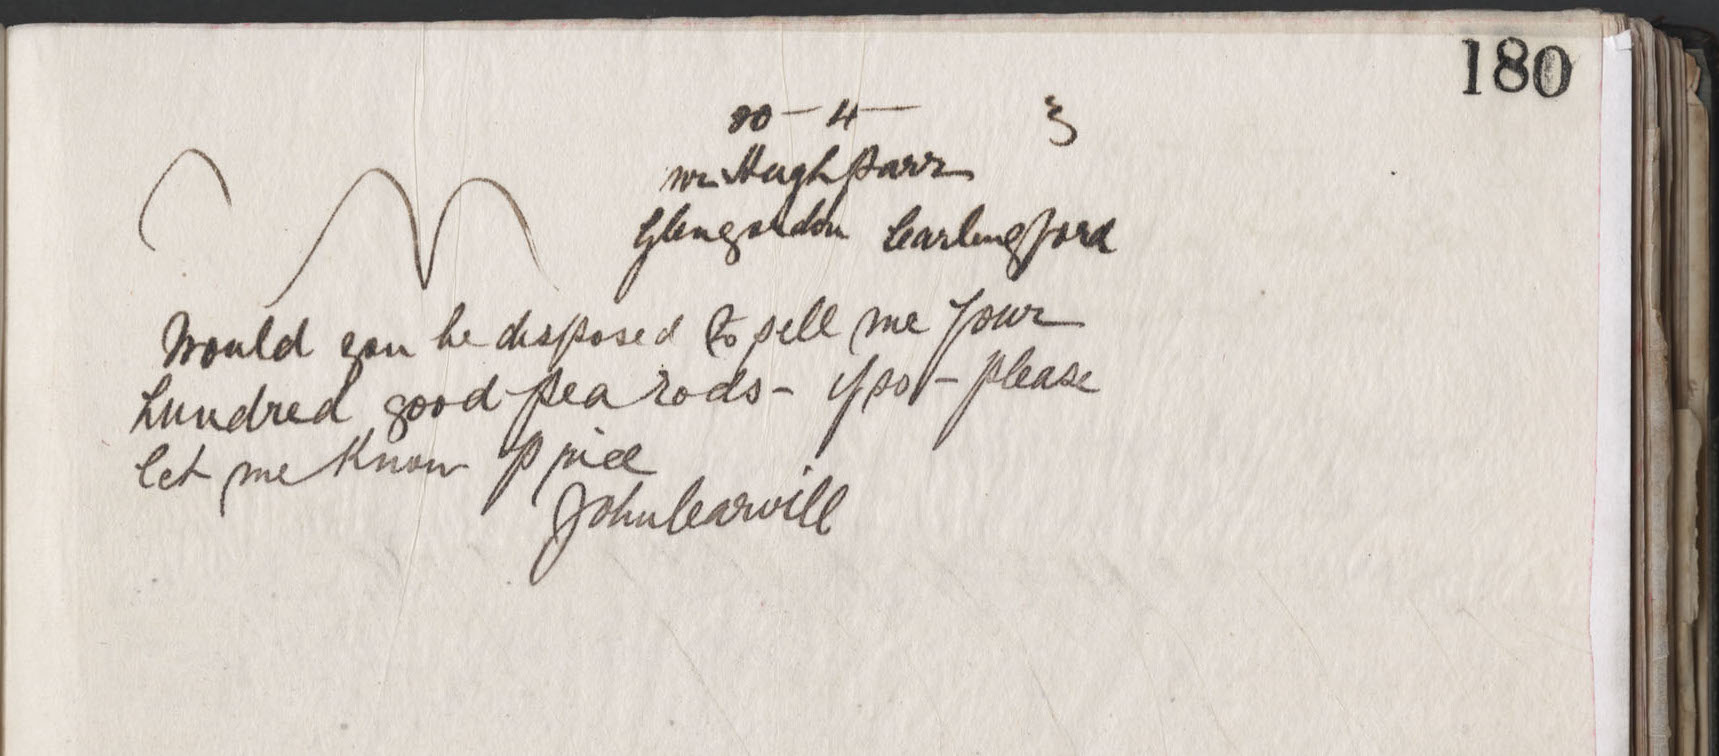 180
20 - 4 - 3
Mr Hugh Parr
Glengordon Carlingford
Would you be disposed to sell me four
hundred good pea rods - if so - please
let me know p price
John Carvill